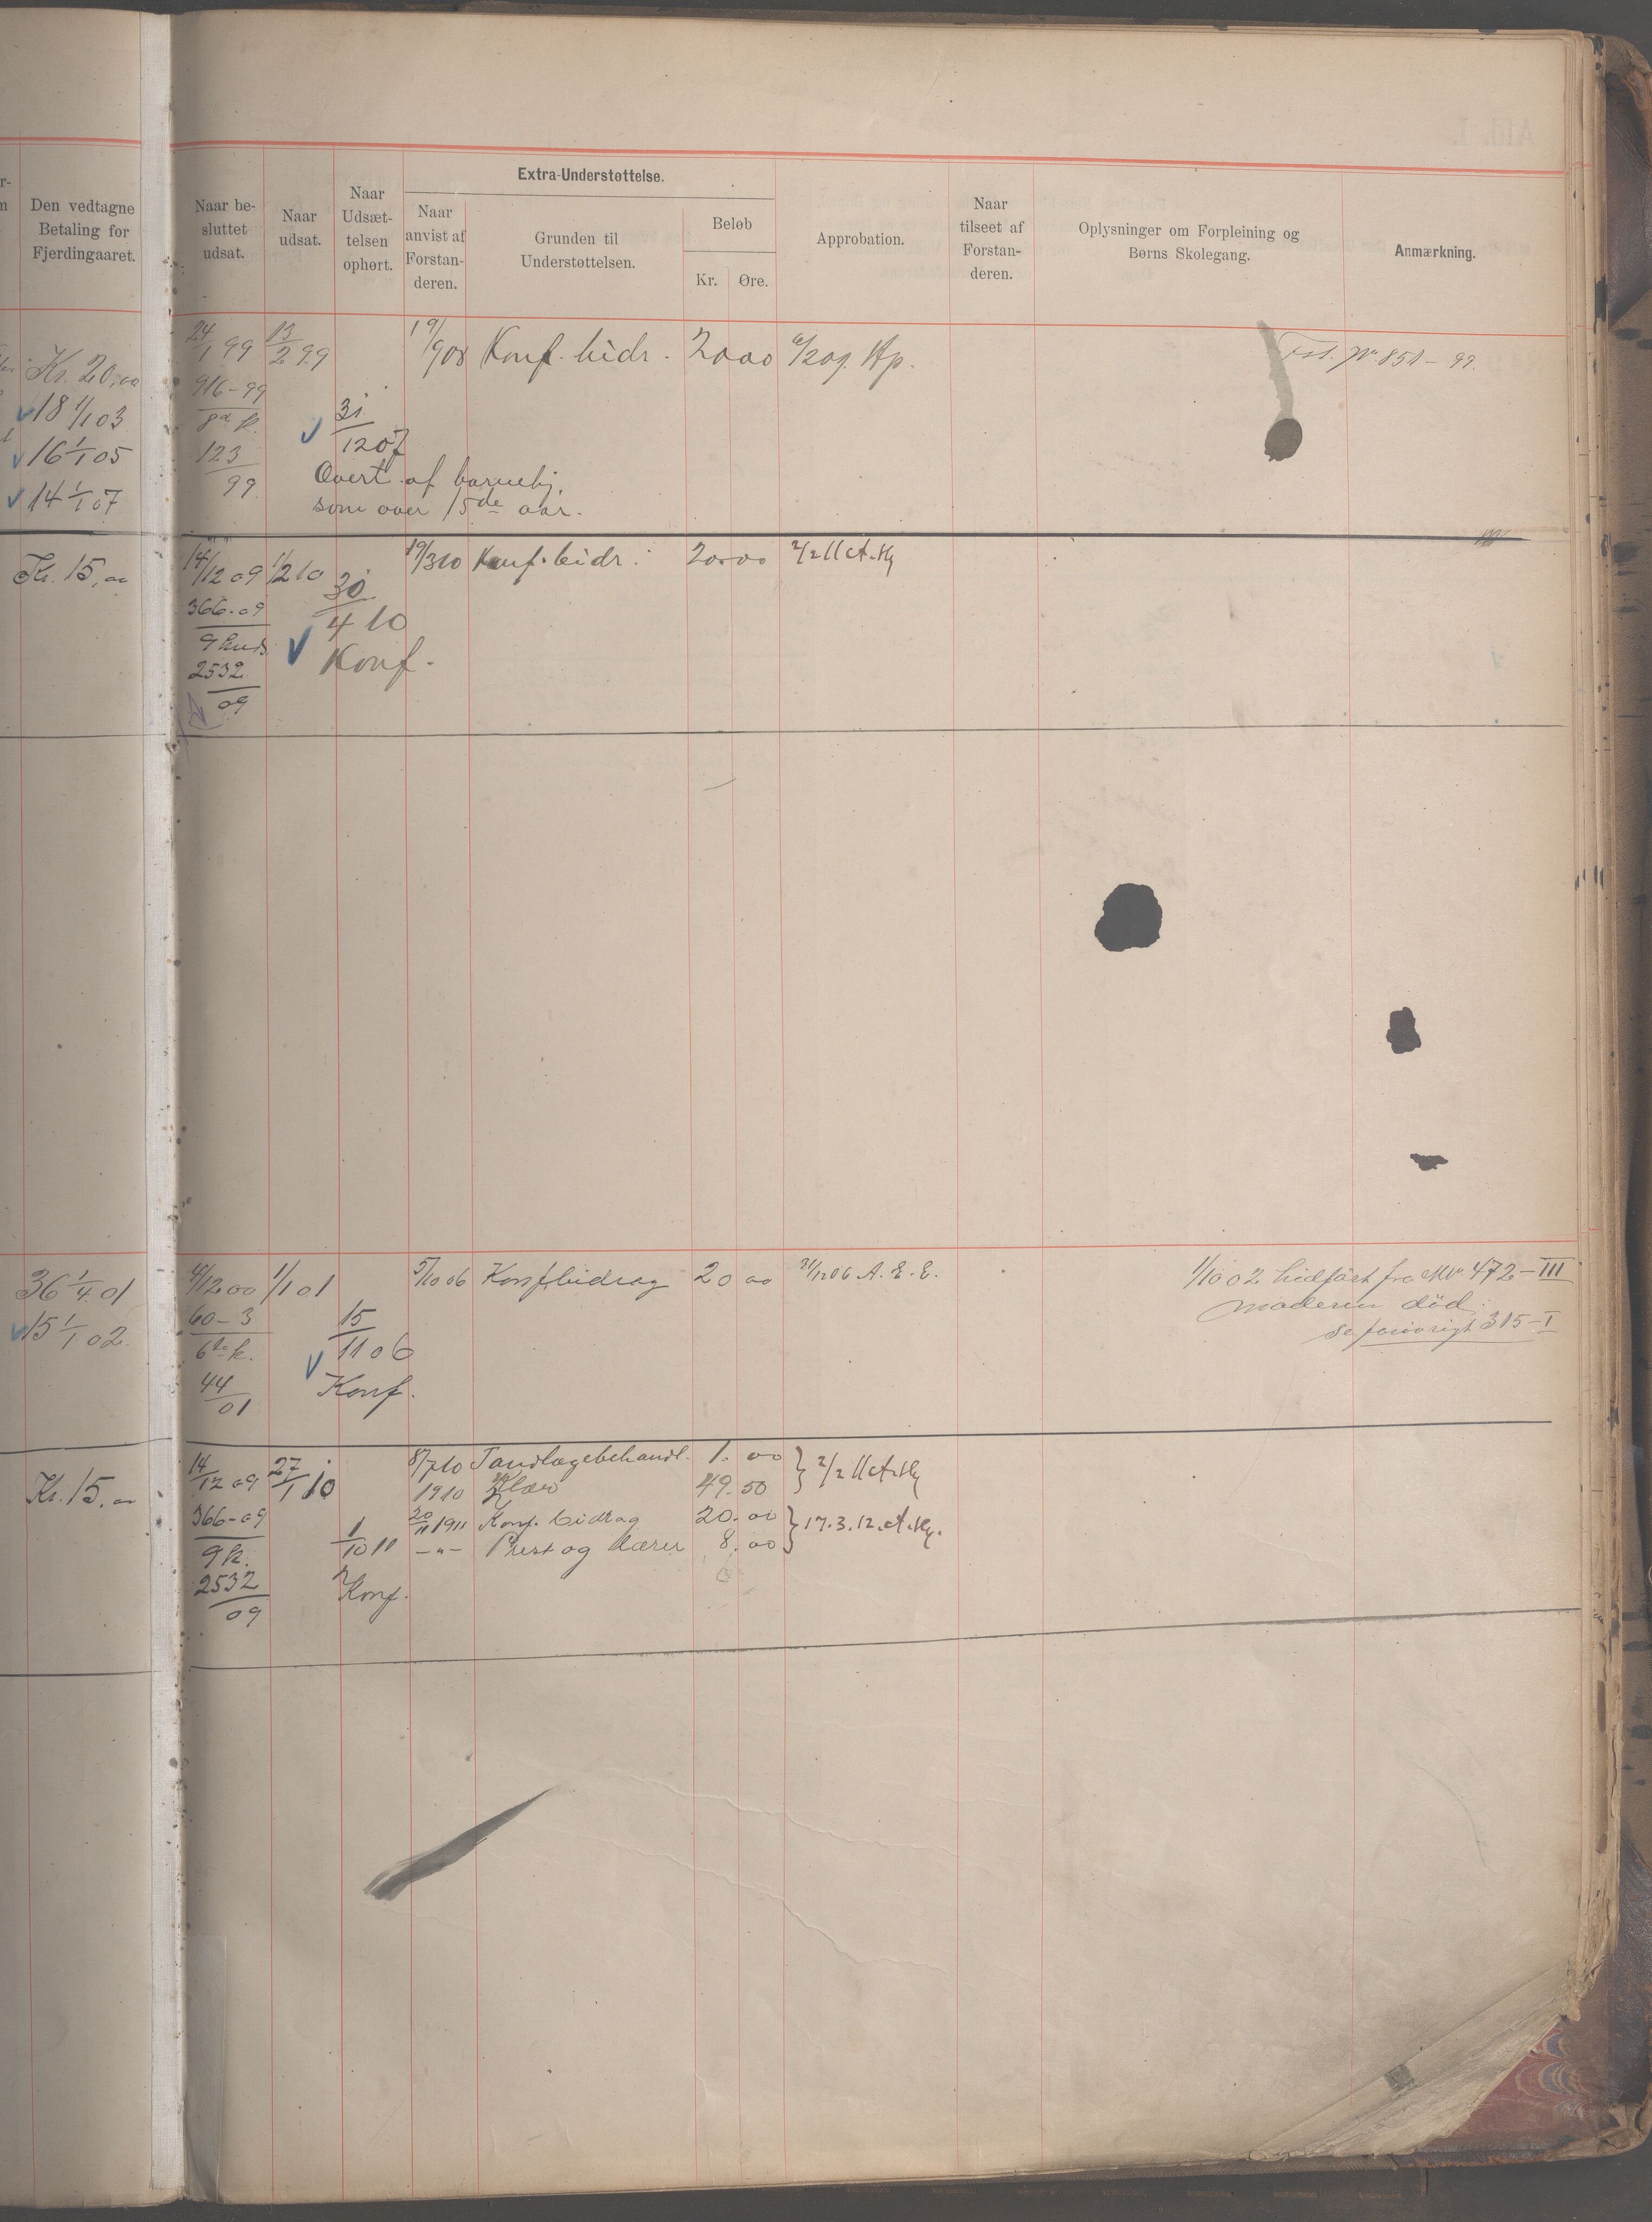 Den vedtagne
Betaling for
Fjerdingaaret.
Naar be-
sluttet
udsat.
Naar
udsat.
Naar
Udsæt-
telsen
ophørt.
Extra-Understøttelse.
Naar
anvist af
Forstan-
deren.
Grunden til
Understøttelsen.
Beløb
Kr.
Øre.
Approbation.
Naar
tilseet af
Forstan-
deren.
Oplysninger om Forpleining og
Børns Skolegang.
Anmærkning.
Kr. 20,00
18 1/1 03
16 1/1 05
14 1/1 07
24/1 99
13/2 99
19/9 08 Konf. bidr. 20 00
No 851 - 99.
916-99
123
99
31
12 07
Overt. af barnehj.
som over 15de aar.
Kr. 15,00
14/12 09 1/2 10
19/3 10 Konf. bidr. 20.00 2/2 11
366-09
2532
09
30
4 10
Konf.
36 1/4 01
15 1/1 02
4/12 00 1/1 01
5/10 06 Konfbidrag 20 00 31/12 06 A. E. E.
60-3
44
01
15
11 06
Konf.
1/10 02 hidført fra No 472-III
moderen död
se forövrigt 315-I
Kr. 15,00
14/12 09 27/1 10
8/7 10 Tandlægebehandl. 1.00 2/2 11
1910 Klær 49.50
20/11 1911 Konf. bidrag 20.00 17.3.12.
-"- Prest og Lærer 8.00
366-09
9 k.
2532
09
1
10 11
Konf.